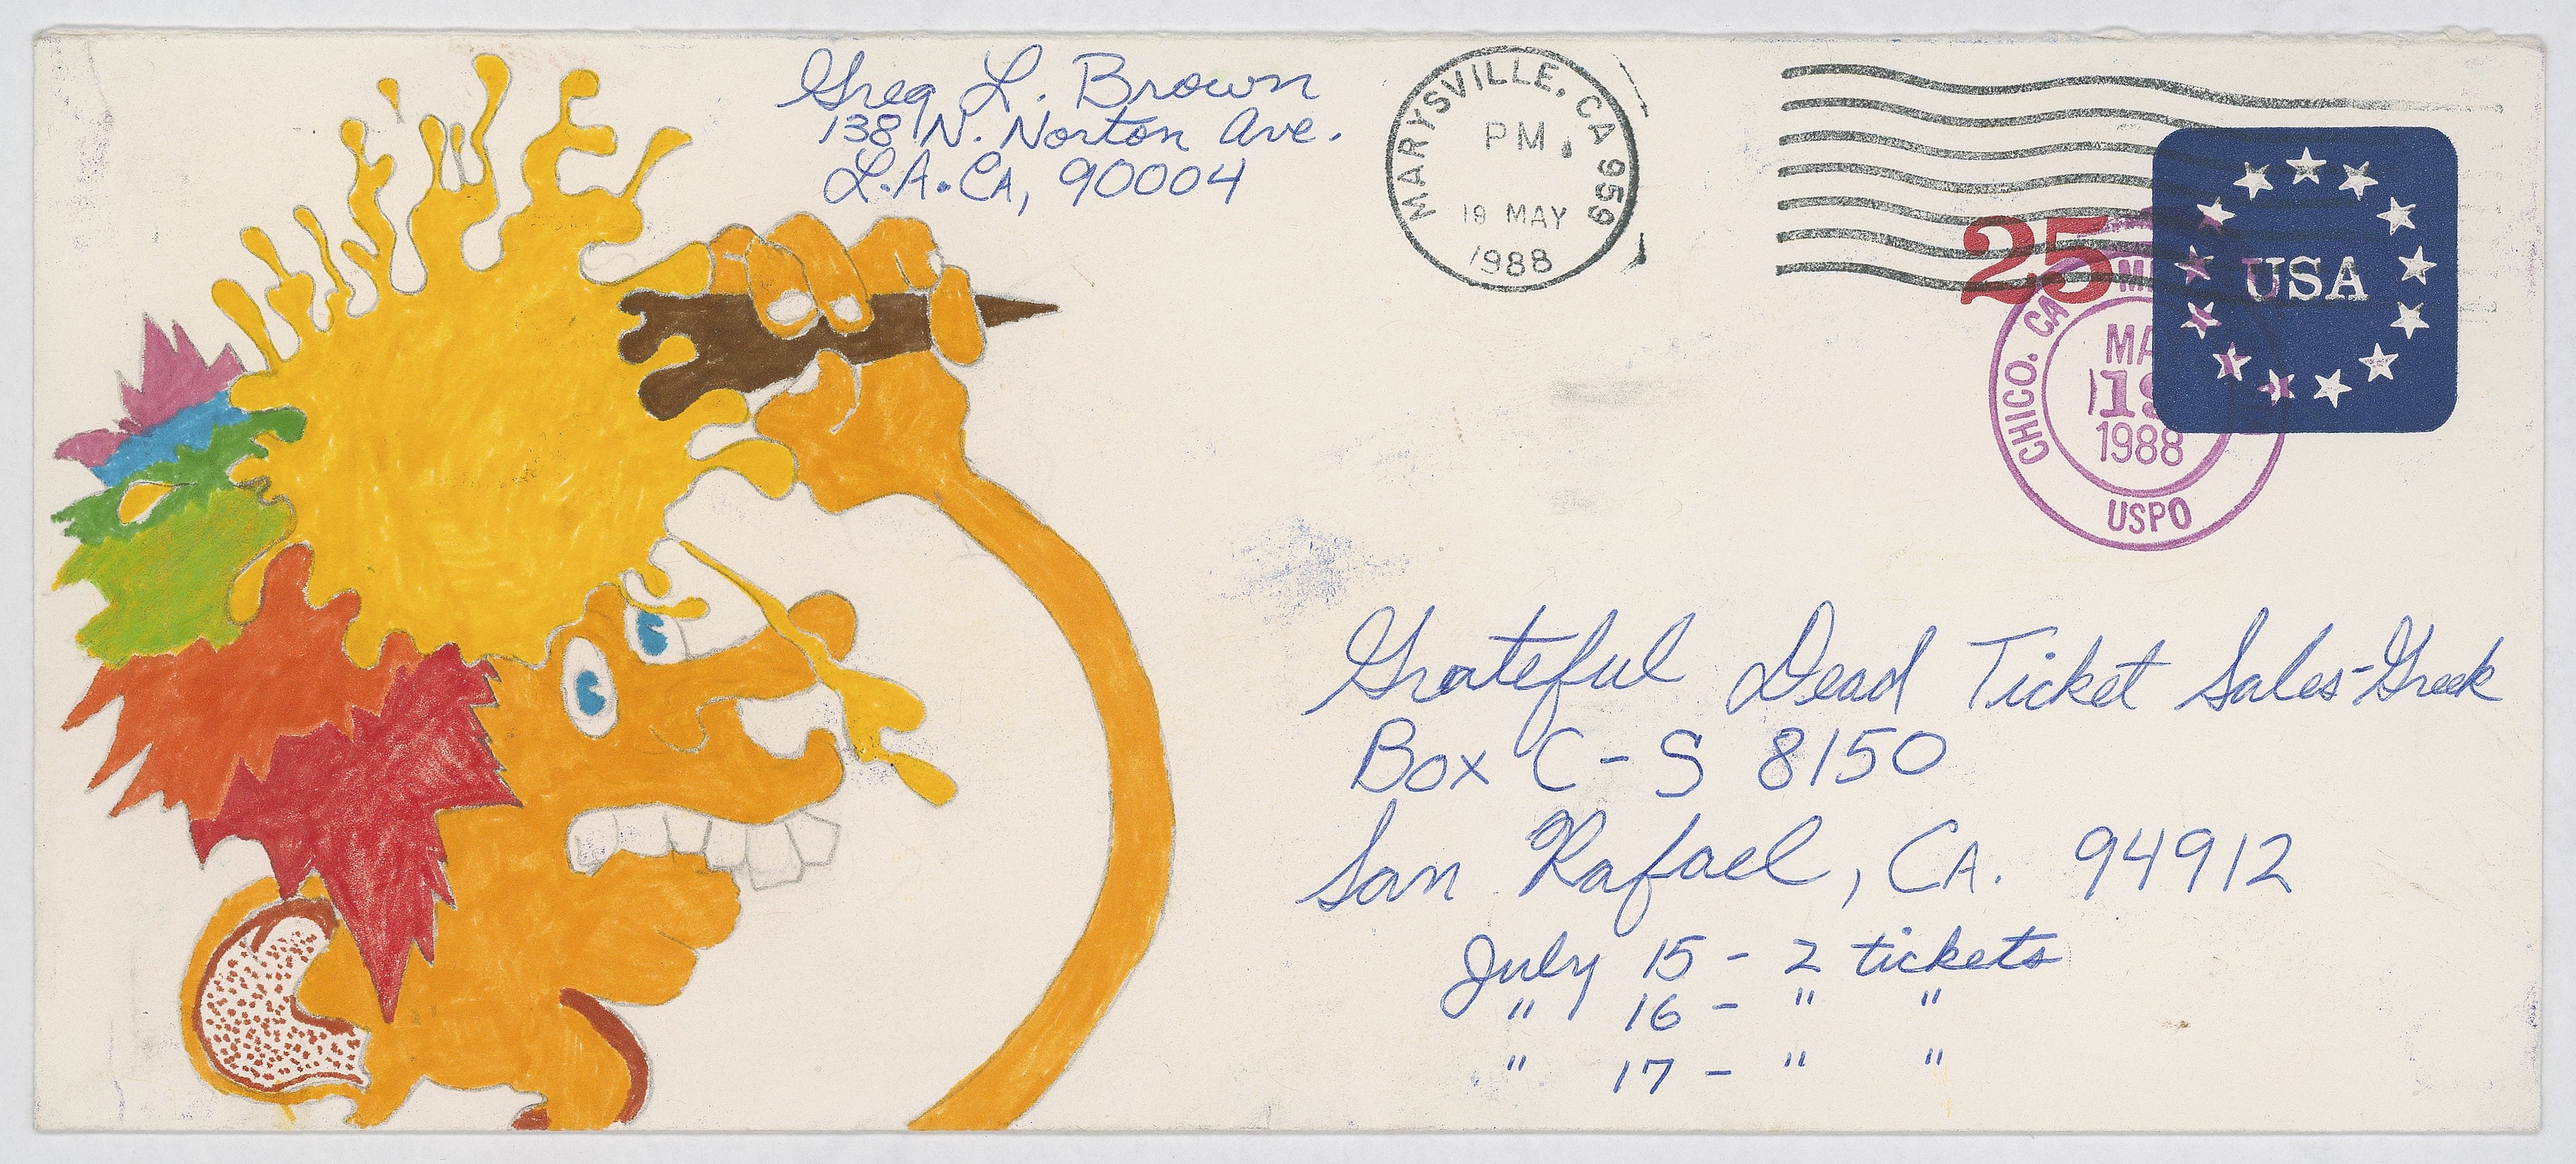 Greg L. Brown
138 N. Norton Ave.
L.A. CA, 90004
MARYSVILLE, CA 959
PM
19 MAY
1988
25
USA
CHICO. CA
MA
19
1988
USPO
Grateful Dead Ticket Sales-Greek
Box C-S 8150
San Rafael, CA. 94912
July 15 - 2 tickets
" 16 - " "
" 17 - " "